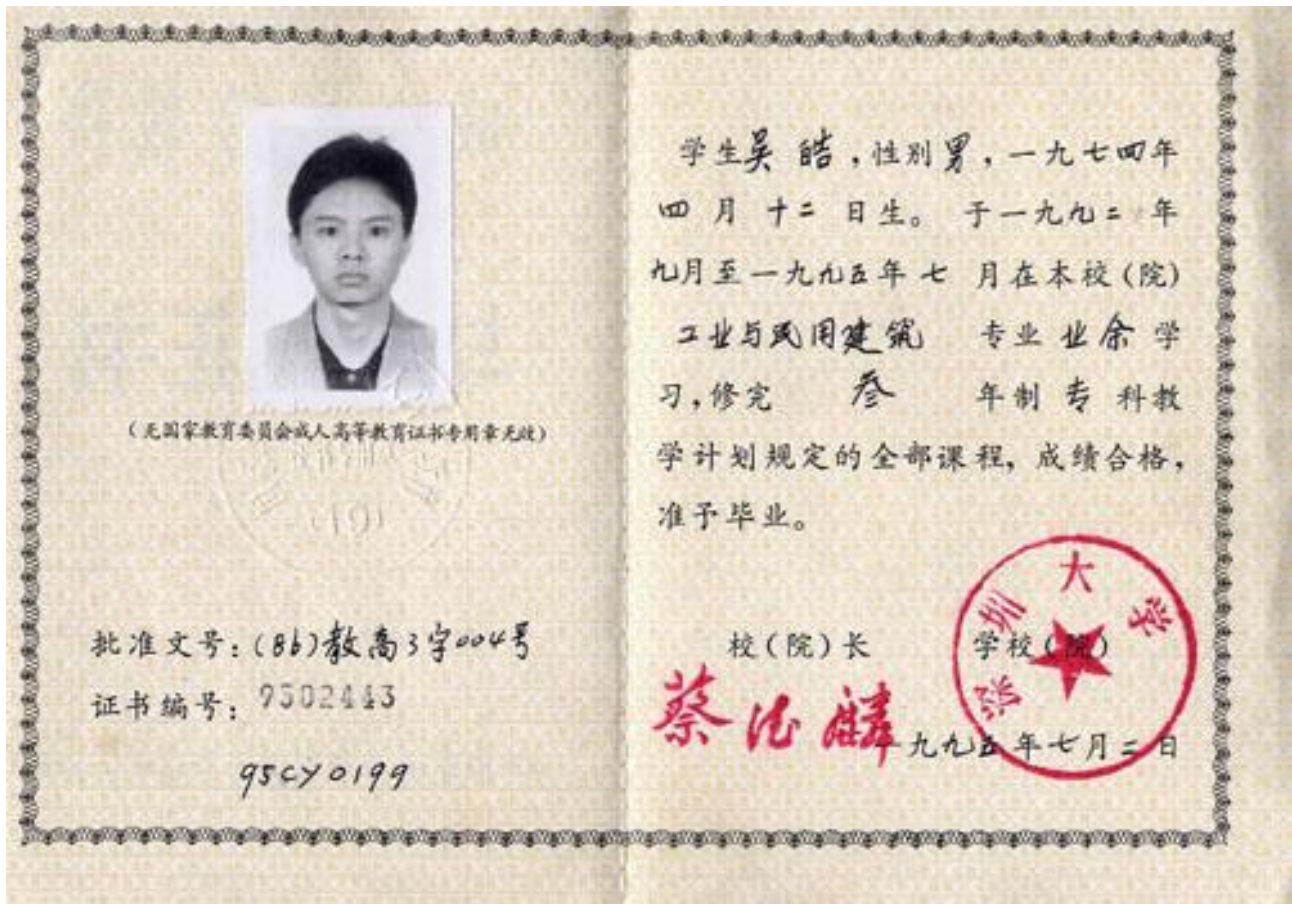 (无国家教育委员会成人高等教育证书专用章无效)
(19)
批准文号:(86)教高3字004号
证书编号:9502443
95CY0199
学生吴皓,性别男,一九七四年
四月十二日生。于一九九二年
九月至一九九五年七月在本校(院)
工业与民用建筑 专业业余学
习,修完 叁 年制专科教
学计划规定的全部课程,成绩合格,
准予毕业。
校(院)长 学校(院)
蔡德麟
深圳大学
一九九五年七月二日